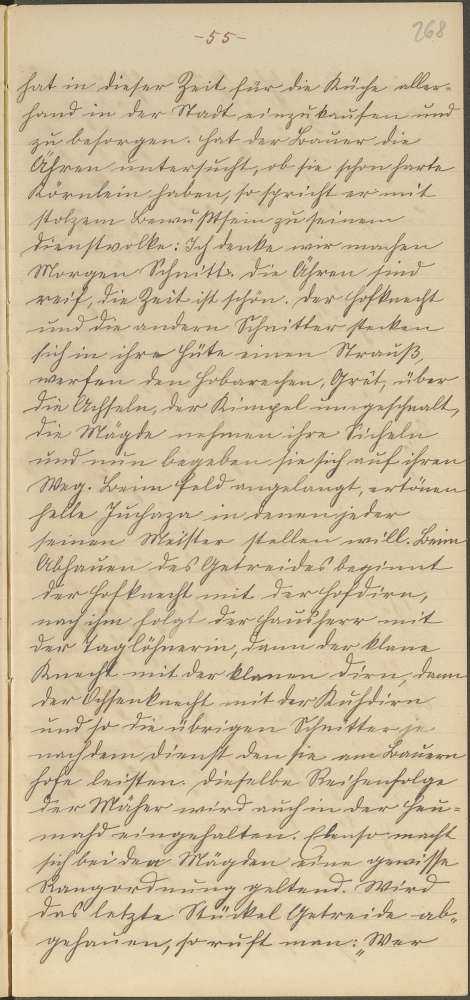 -55-
268
hat in dieser Zeit für die Küche aller-
hand in der Stadt einzukaufen und
zu besorgen. Hat der Bauer die
Ähren untersucht, ob sie schon harte
Körnlein haben, so spricht er mit
stolzem Bewußtsein zu seinem
Dienstvolke: Ich denke wir machen
Morgen Schnitt. Die Ähren sind
reif, die Zeit ist schön. Der Hofknecht
und die andern Schnitter stecken
sich in ihre Hüte einen Strauß,
werfen den Hobarechen, Grät, über
die Achseln, der Kimpel umgeschnalt,
die Mägde nehmen ihre Sicheln
und nun begeben sie sich auf ihren
Weg. Beim Feld angelangt, ertönen
helle Juchaza in denen jeder
seinen Meister stellen will. Beim
Abhauen des Getreides beginnt
der Hofknecht mit der Hofdirn,
nach ihm folgt der Hausherr mit
der Taglöhnerin, dann der klane
Knecht mit der klanen Dirn, dann
der Ochsenknecht mit der Kuhdirn
und so die übrigen Schnitter je
nach dem Dienst den sie am Bauern
hofe leisten. Dieselbe Reihenfolge
der Mäher wird auch in der Heu-
mahd eingehalten. Ebenso macht
sich bei den Mägden eine gewisse
Rangordnung geltend. Wird
das letzte Stückel Getreide ab-
gehauen, so ruft man: „Wer